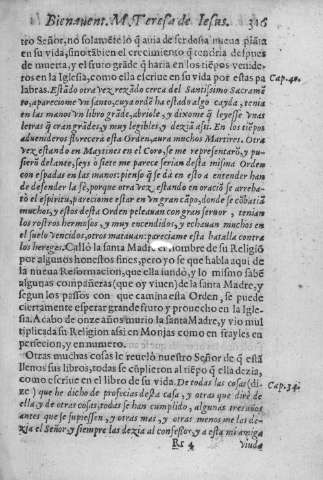 Bienauent. M. Teresa de Iesus. 316
tro Señor, no solamẽte lo q̃ auia de ser desta nueua plãta
en su vida, sino tãbien el crecimiento q̃ tendria despues
de muerta, y el fruto grãde q̃ haria en los tiẽpos venide-
ros en la Iglesia, como ella escriue en su vida por estas pa Cap. 40.
labras. Estãdo otra vez rezãdo cerca del Santissimo Sacramẽ
to, apareciome vn santo, cuya ordẽ ha estado algo cayda, tenia
en las manos vn libro grãde, abriole, y dixome q̃ leyesse vnas
letras q̃ eran grãdes, y muy legibles, y deziã assi. En los tiẽpos
aduenideros florecerà esta Orden, aura muchos Martires. Otra
vez estando en Maytines en el Coro, se me representarõ, y pu-
sierõ delante, seys o siete me parece serian desta misma Orden
con espadas en las manos: pienso q̃ se da en esto a entender han
de defender la fè, porque otra vez, estando en oraciõ se arreba-
tò el espiritu, pareciome estar en vn gran cãpo, donde se cõbatiã
muchos, y estos desta Orden peleauan con gran feruor, tenian
los rostros hermosos, y muy encendidos, y echauan muchos en
el suelo vencidos, otros matauan: pareciame esta batalla contra
los hereges. Callò la santa Madre el nombre de su Religiõ
por algunos honestos fines, pero yo se que habla aqui de
la nueua Reformacion, que ella fundò, y lo mismo sabẽ
algunas compañeras (que oy viuen) de la santa Madre, y
segun los passos con que camina esta Orden, se puede
ciertamente esperar grande fruto y prouecho en la Igle-
sia. A cabo de onze años murio la santa Madre, y vio mul
tiplicada su Religion assi en Monjas como en frayles en
perfecion, y en numero.
Otras muchas cosas le reuelò nuestro Señor de q̃ està
llenos sus libros, todas se cũplieron al tiẽpo q̃ ella dezia,
como escriue en el libro de su vida. De todas las cosas (di- Cap. 34.
ze) que he dicho de profecias desta casa, y otras que dirè de
ella, y de otras cosas, todas se han cumplido, algunas tres años
antes que se supiessen, y otras mas, y otras menos me las de-
zia el Señor, y siempre las dezia al confessor, y a esta mi amiga
Rr 4 viuda